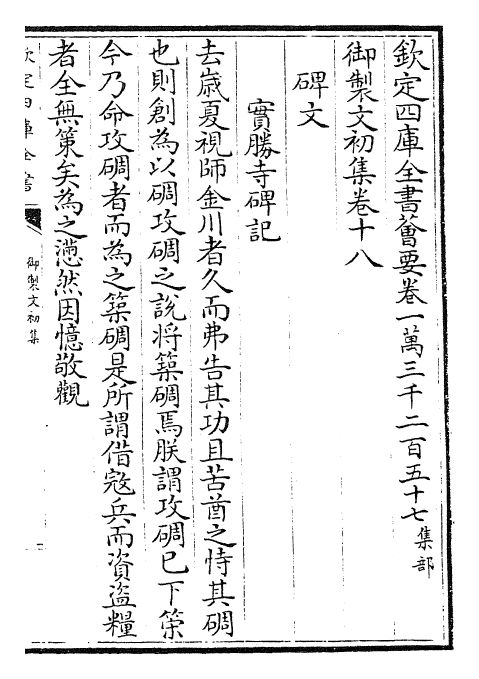 欽定四庫全書薈要卷一萬三千二百五十七集部
御製文初集卷十八
碑文
實勝寺碑記
去歲夏視師金川者久而弗告其功且苦酋之恃其碉
也則創為以碉攻碉之說將築碉焉朕謂攻碉已下策
今乃命攻碉者而為之築碉是所謂借寇兵而資盜糧
者全無策矣為之懣然因憶敬觀
欽定四庫全書
御製文初集
一